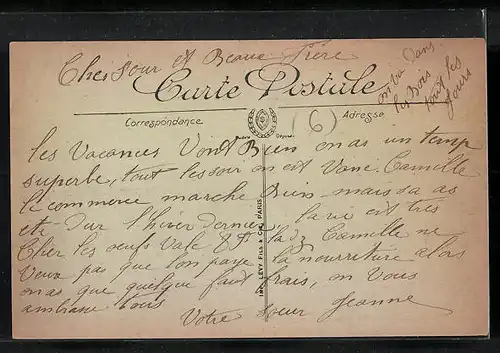 Cher sour et Beau frère
on va dans
les Bois
tout les
jours
Carte Postale
Correspondance
Adresse
(6)
les vacances vont Bien on as un temp
superbe, tout les soir on est Camille
le commerce marche Bien mais sa as
ete dur l'hiver dernier, la vie est tres
Cher les oeufs la dz Camille ne
veux pas que l'on paye la nourriture alors
on as que quelque frais, on vous
ambrasse tous
Votre soeur Jeanne
IMP. LEVY FILS & Cie, PARIS